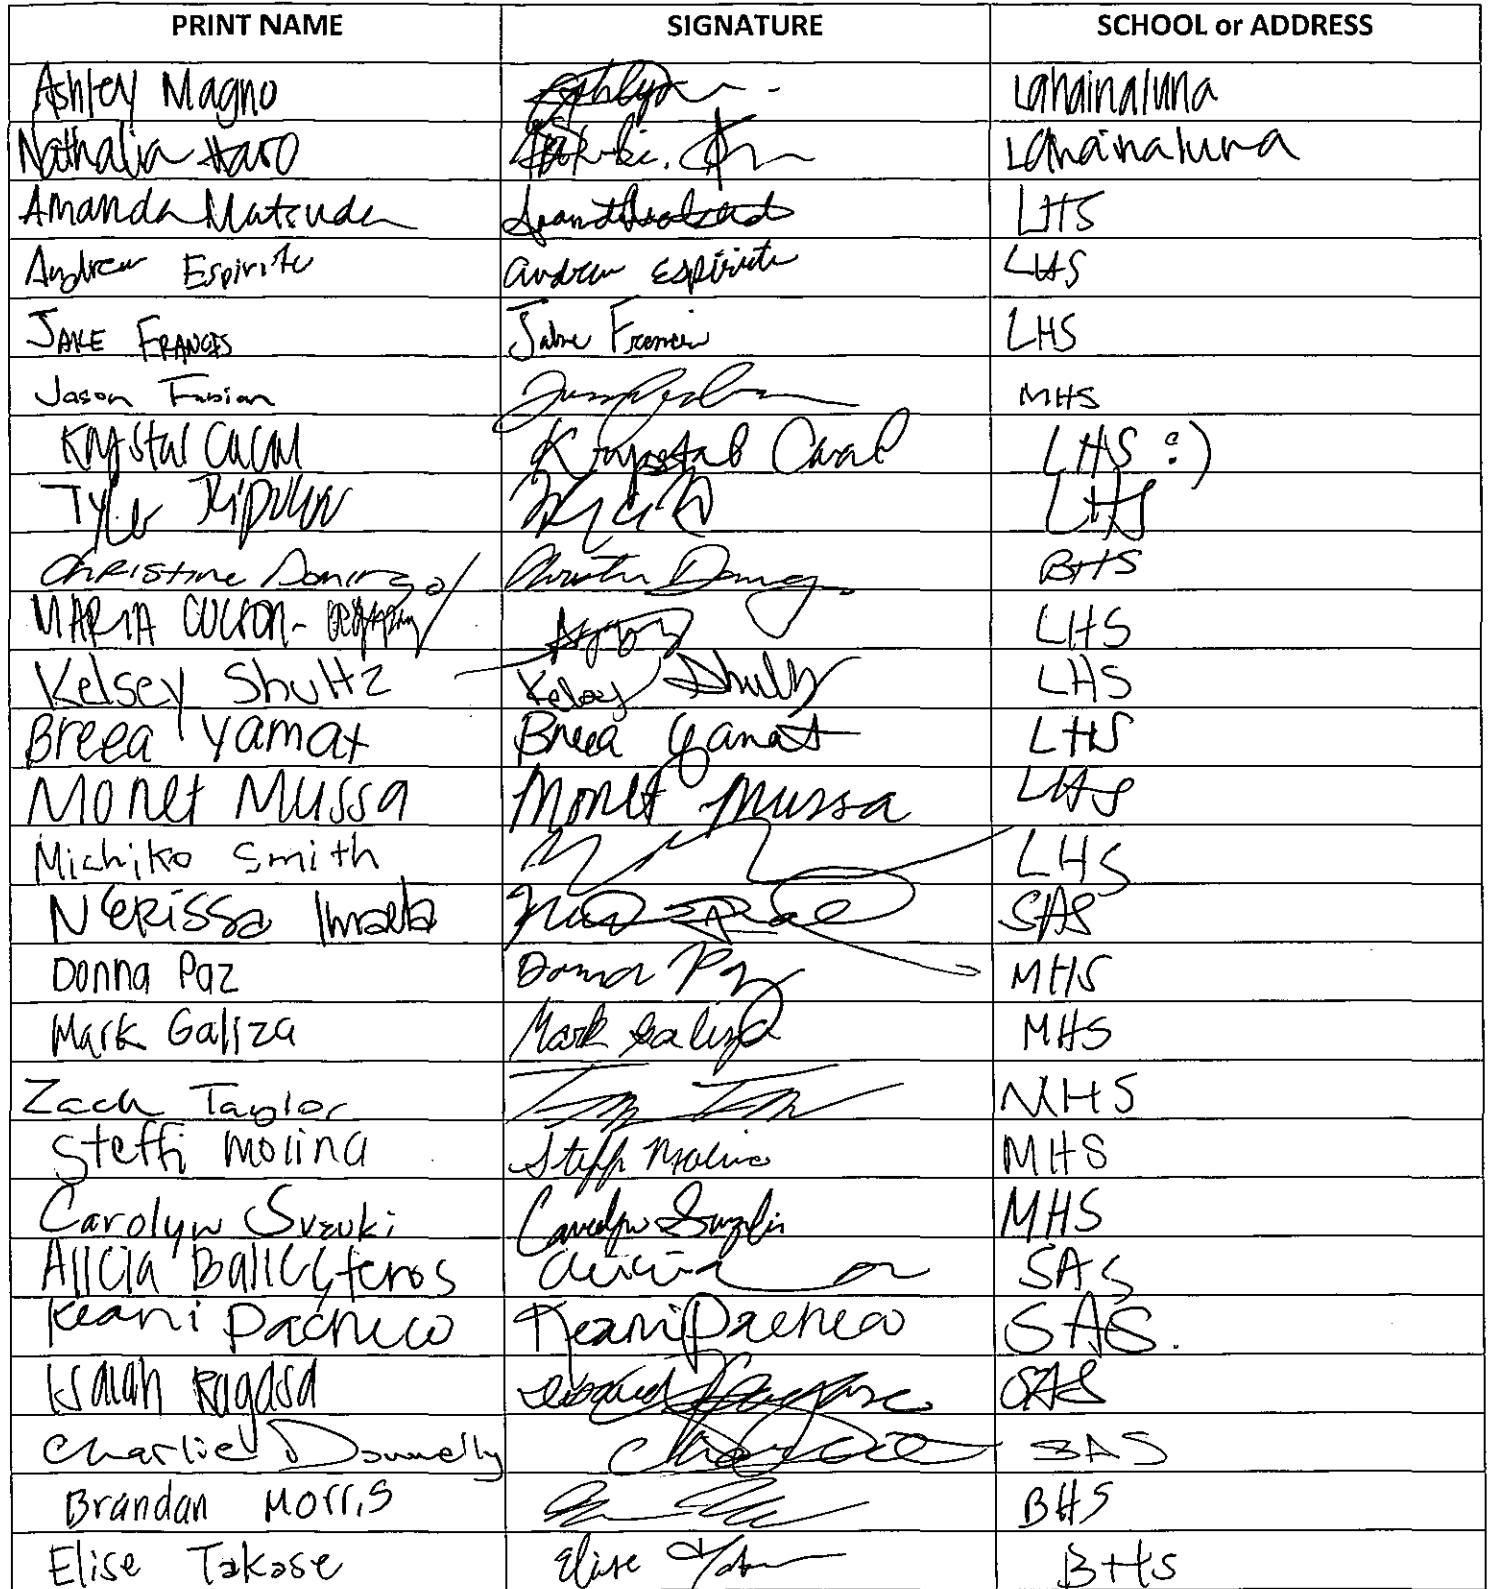 PRINT NAME SIGNATURE SCHOOL or ADDRESS
Ashley Magno Lahainaluna
Nathalia Haro Lahainaluna
Amanda Matsuda LHS
Andrew Espiritu Andrew Espiritu LHS
JAKE FRANCIS Jake Francis LHS
Jason Fabian MHS
Krystal Cacal Krystal Cacal LHS :)
Tyler LHS
Christine Domingo Christine Domingo BHS
MARIA LHS
Kelsey Shultz Kelsey Shultz LHS
Breea Yamat Breea Yamat LHS
Monet Mussa Monet Mussa LHS
Michiko Smith LHS
NERISSa SAS
Donna Paz Donna Paz MHS
Mark Galiza Mark Galiza MHS
Zach Taylor MHS
Steffi Molina Steffi Molina MHS
Carolyn Suzuki Carolyn Suzuki MHS
Alicia Ballesteros Alicia SAS
Keani Pacheco Keani Pacheco SAS.
Isaiah Ragasa SAS
Charlie Donnelly SAS
Brandan Morris BHS
Elise Takase Elise BHS